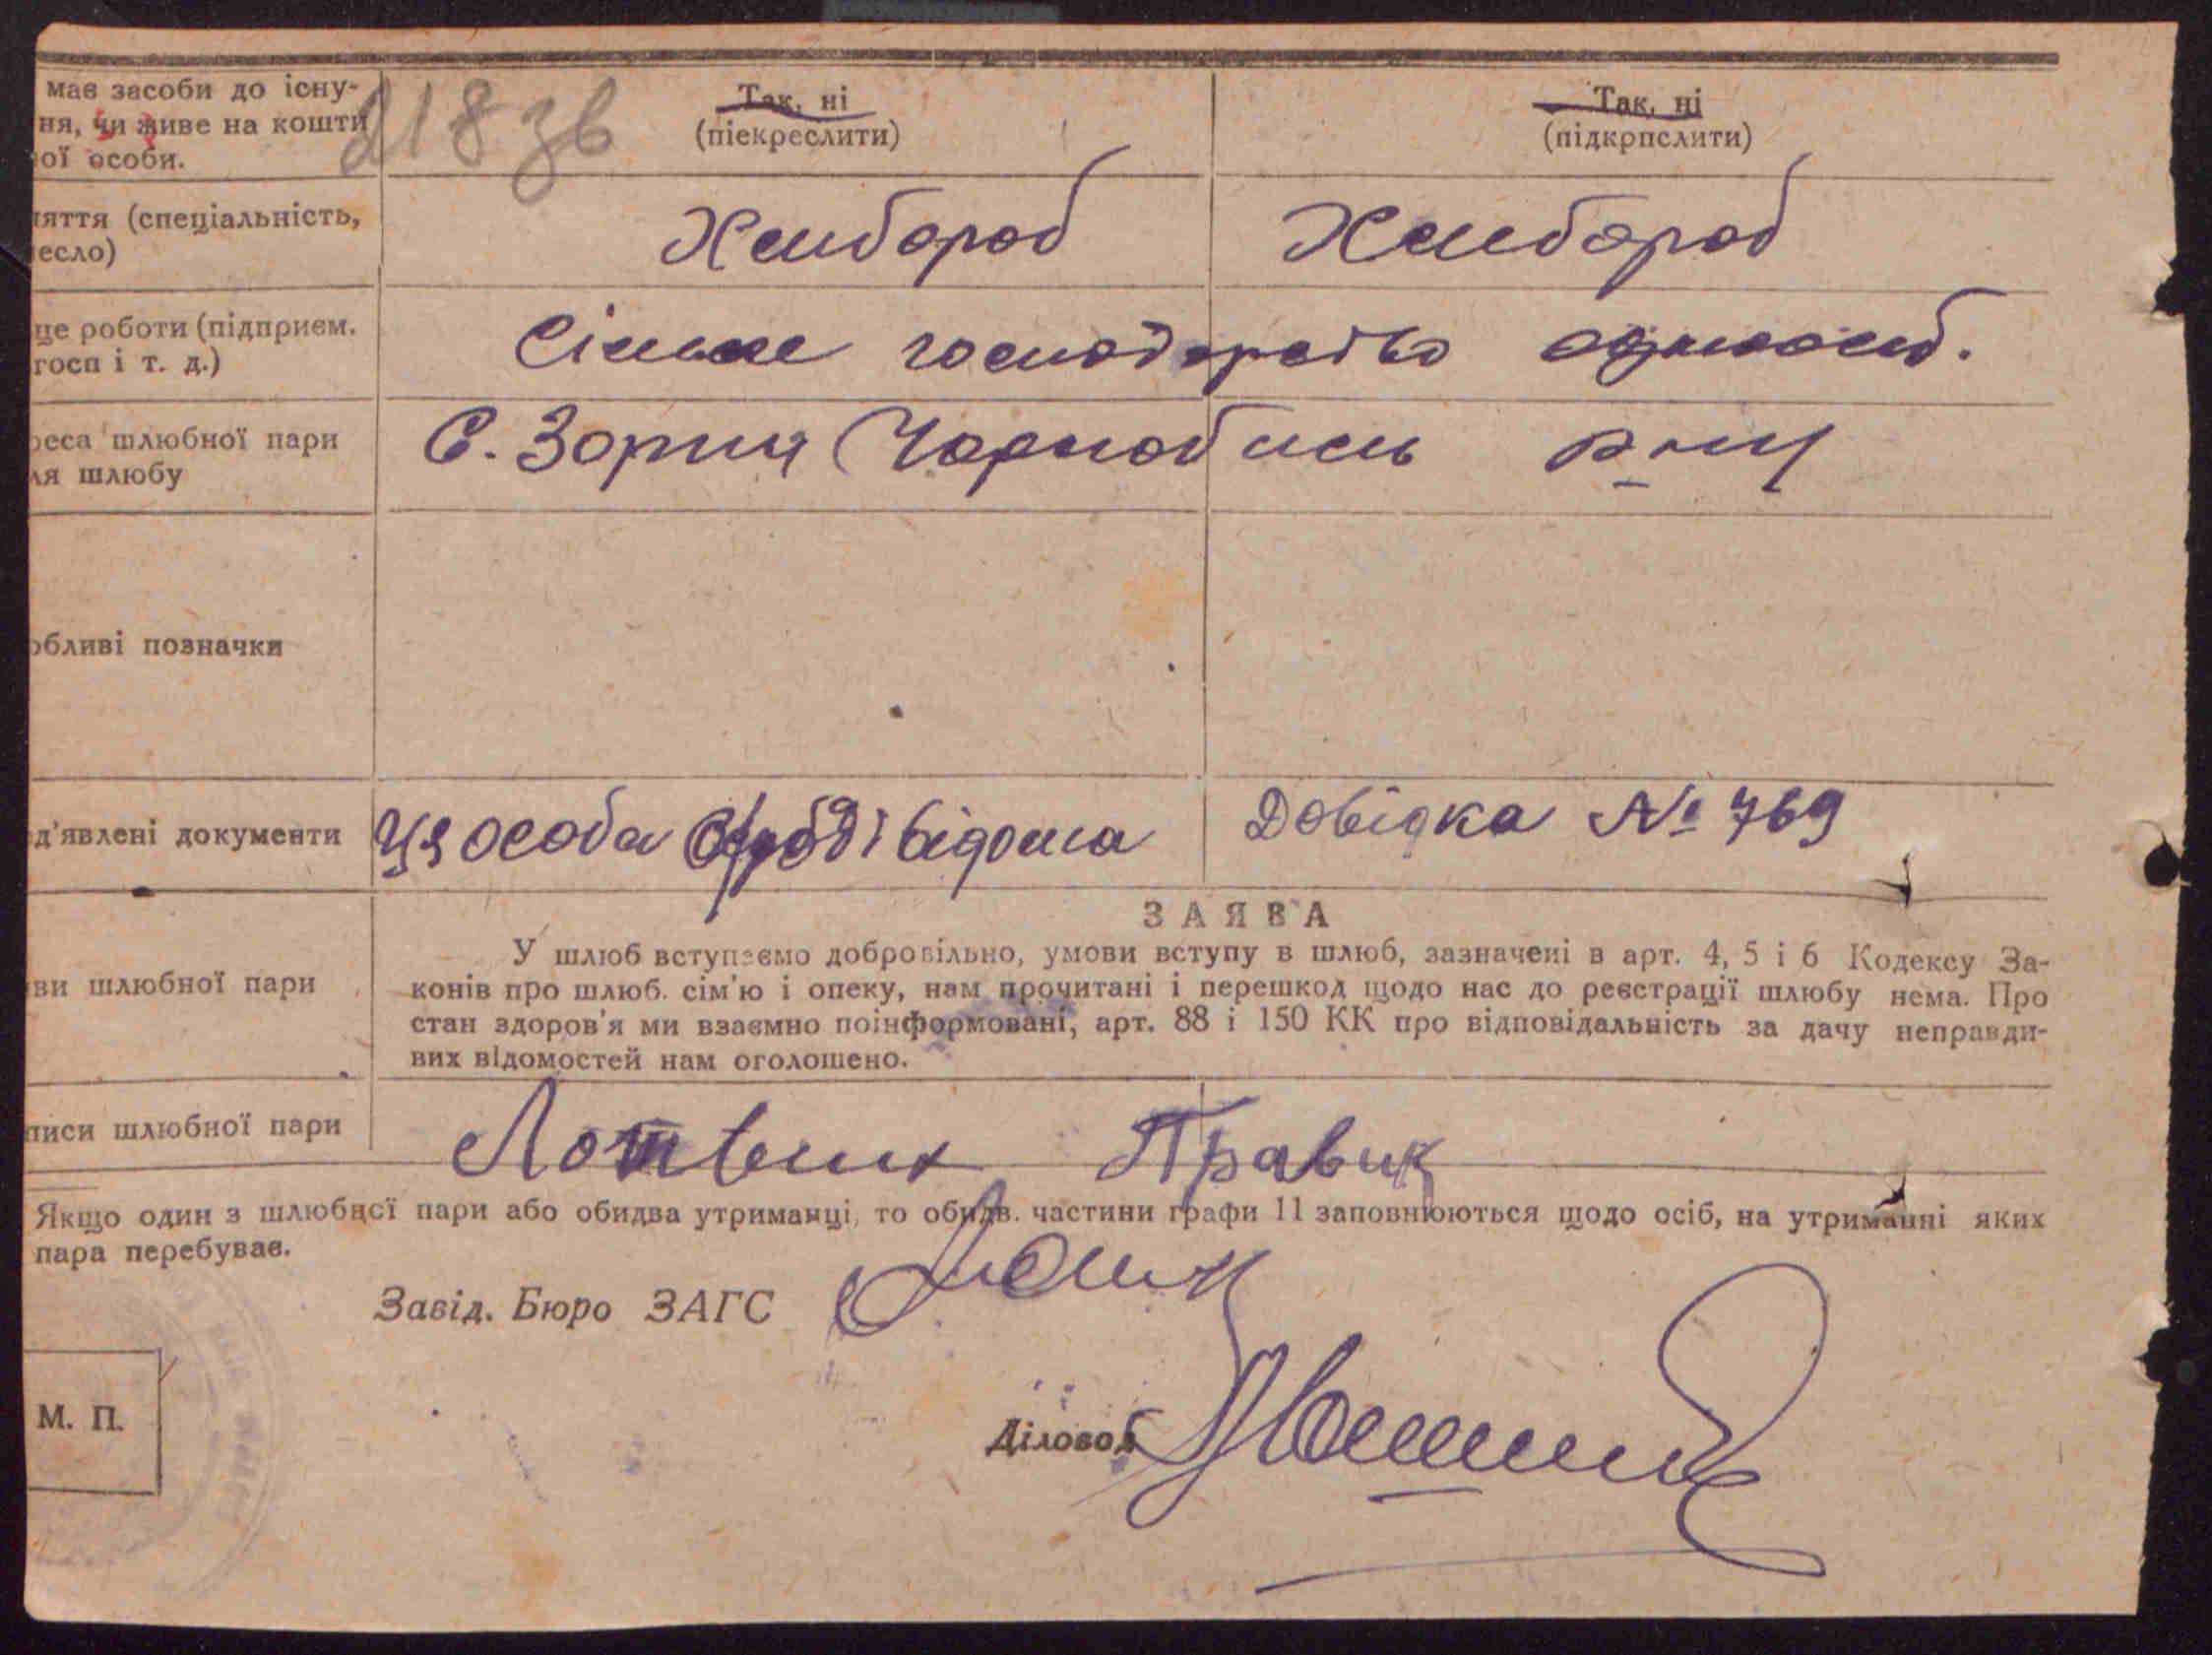 має засоби до існу-
ня, чи живе на кошти
ої особи.
218 зв
Так, ні
(піекреслити)
Так, ні
(підкрпслити)
няття (спеціальність,
есло)
Хлибороб
Хлибороб
це роботи (підприєм.
госп і т. д.)
Сільське господарство одноосіб.
реса шлюбної пари
ля шлюбу
С. Зорин Чорнобиль р-ну
обливі позначки
д'явлені документи
Ця особа відома
Довідка № 769
ЗАЯВА
ви шлюбної пари
У шлюб вступаємо добровільно, умови вступу в шлюб, зазначені в арт. 4, 5 і 6 Кодексу За-
конів про шлюб. сім'ю і опеку, нам прочитані і перешкод щодо нас до реєстрації шлюбу нема. Про
стан здоров'я ми взаємно поінформовані, арт. 88 і 150 КК про відповідальність за дачу неправди-
вих відомостей нам оголошено.
писи шлюбної пари
Правик
Якщо один з шлюбної пари або обидва утриманці, то обидв. частини графи 11 заповнюються щодо осіб, на утриманні яких
пара перебуває.
Завід. Бюро ЗАГС
Діловод
М. П.